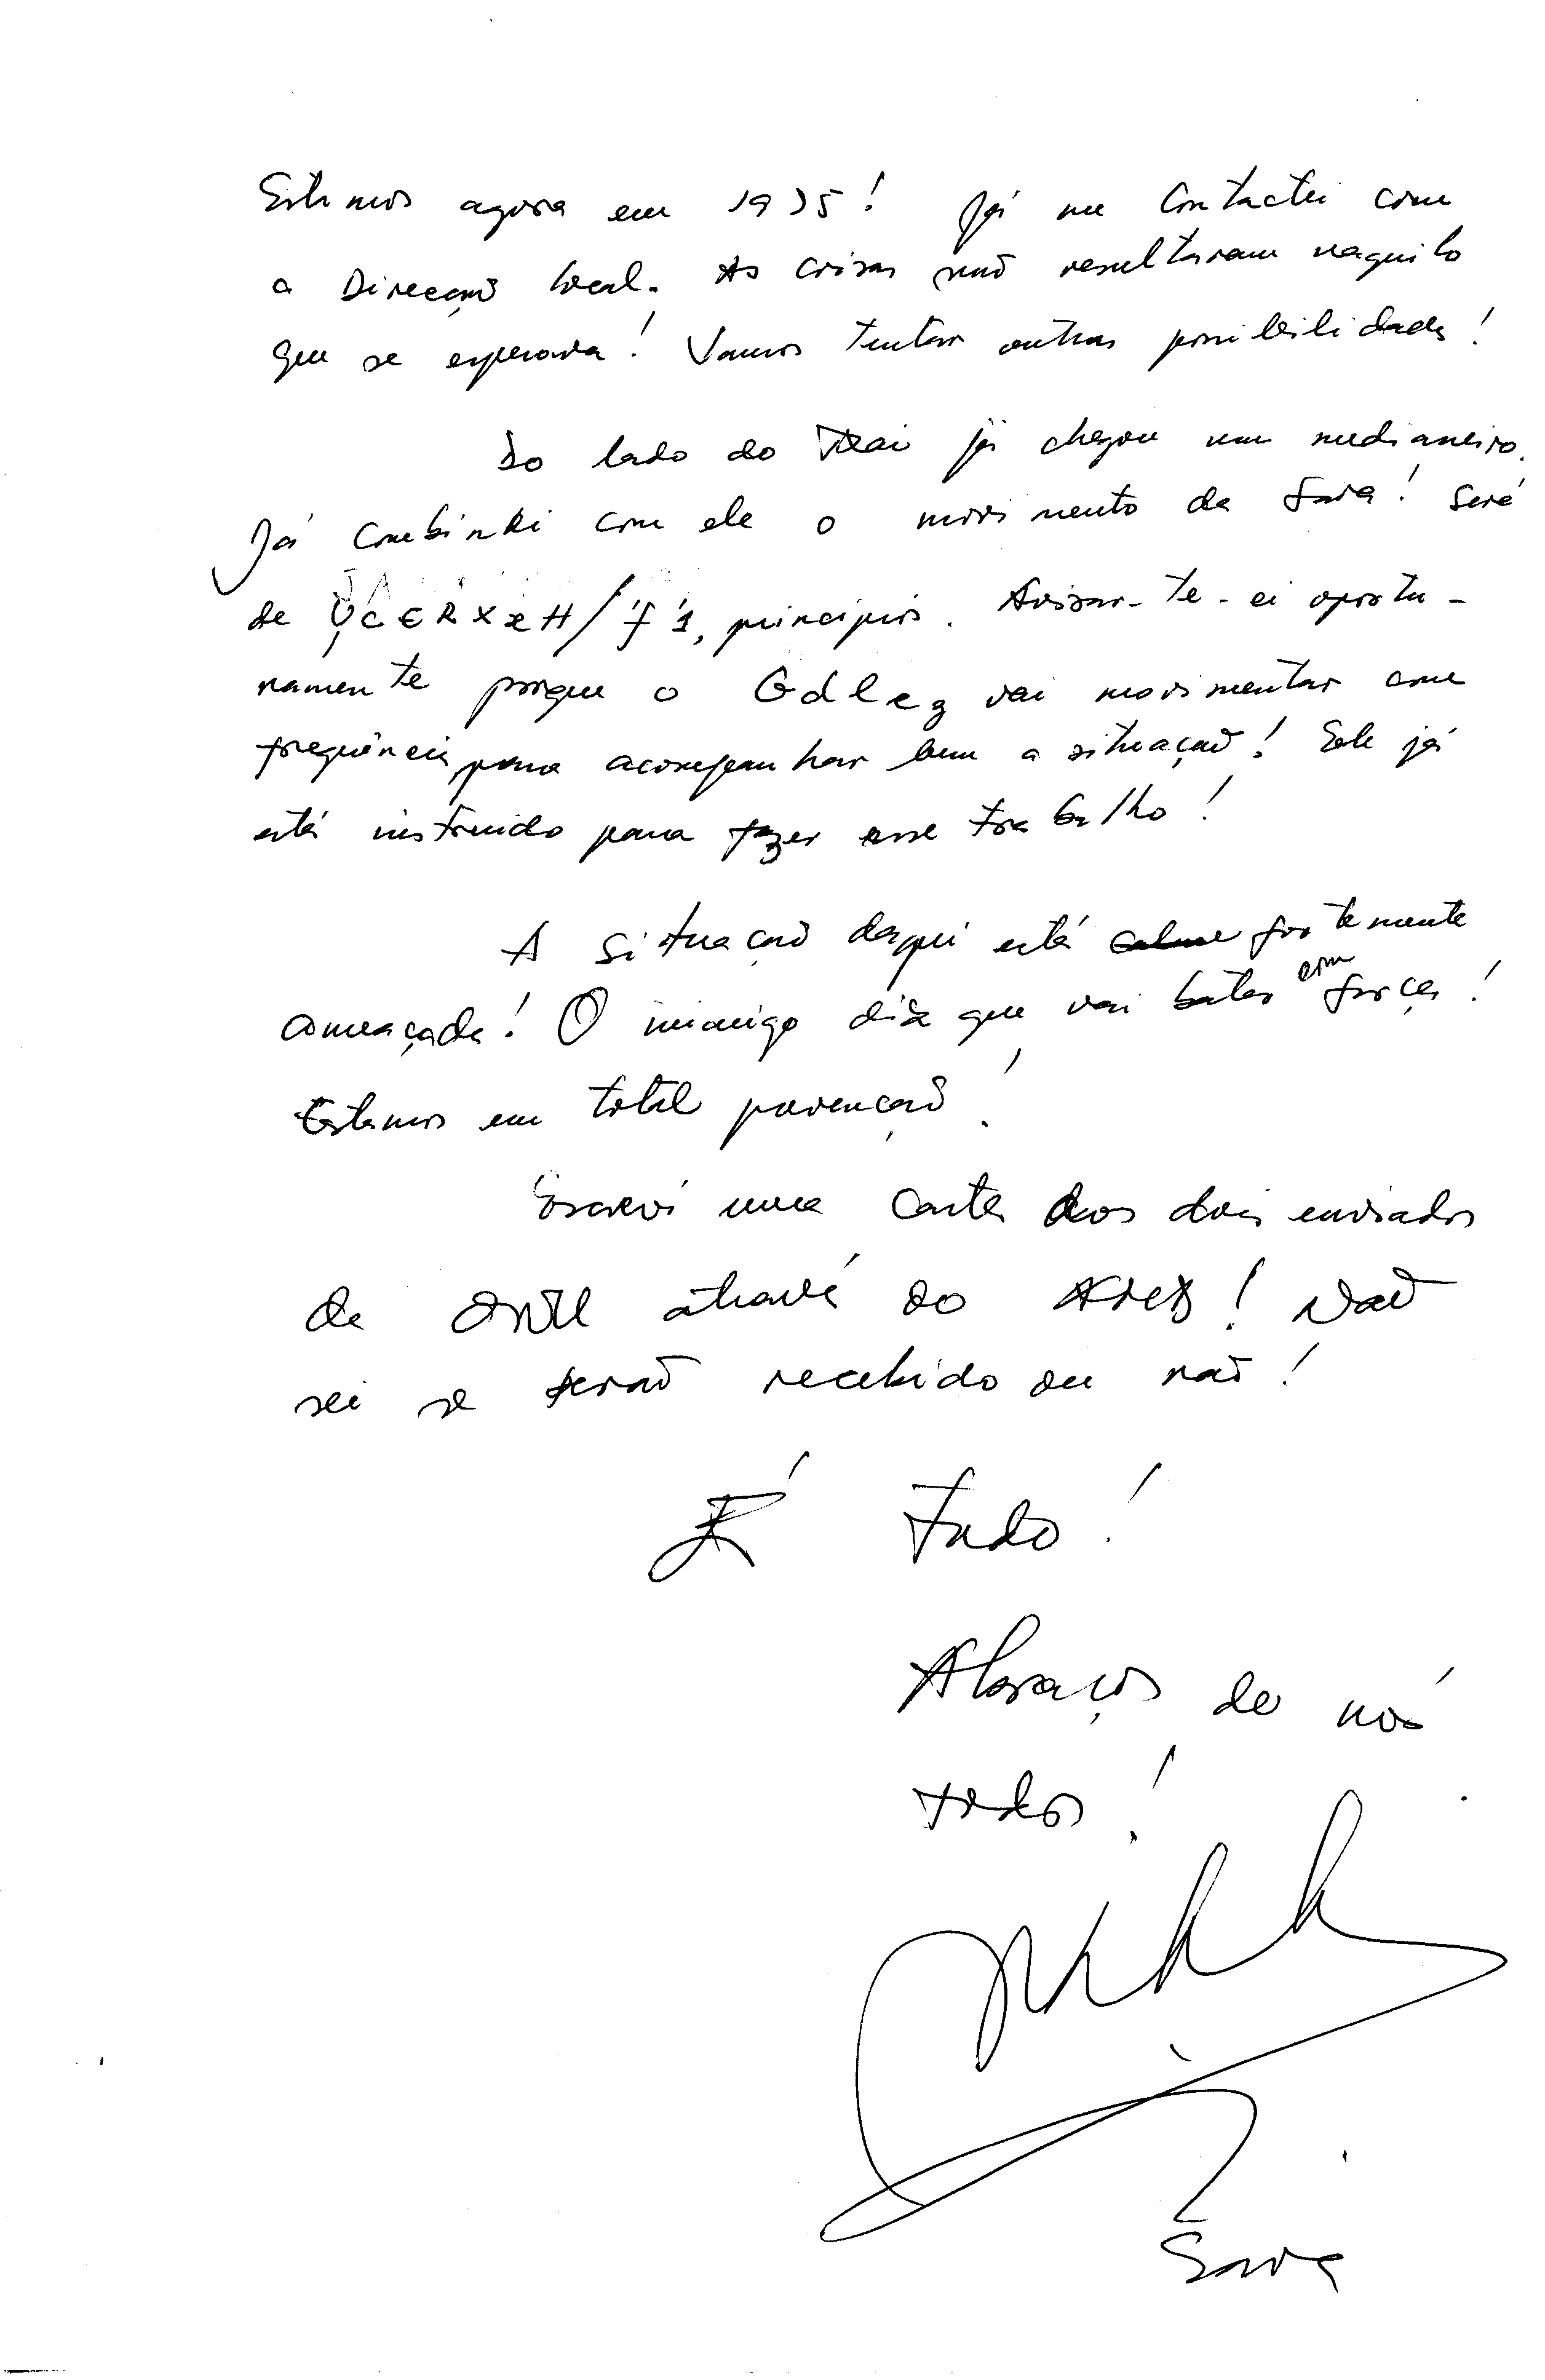 Estamos agora em 1995! Já me contactei com
a Direcção local. As coisas não resultaram naquilo
que se esperava! Vamos tentar outras possibilidades!
Do lado do já chegou um medianeiro.
Já combinei com ele o movimento da Sara! Será
de princípios. Avisar-te-ei oportu-
namente porque o vai movimentar com
frequência para acompanhar bem a situação! Ele já
está instruido para fazer esse trabalho!
A situação daqui está fortemente
ameaçada! O inimigo diz que vai bater com força!
Estamos em total prevenção!
Escrevi uma carta aos dois enviados
da através do ! Não
sei se serão recebido ou não!
É tudo!
Abraços de nós
todos!
Sara